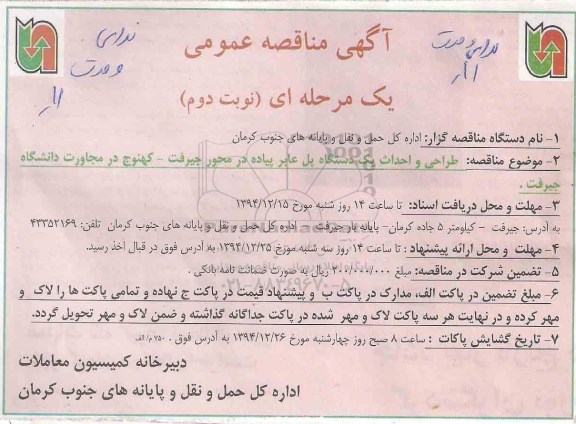 آگهی مناقصه عمومی
یک مرحله ای (نوبت دوم)
ندای وحدت
ندای وحدت
۱- نام دستگاه مناقصه گزار: اداره کل حمل و نقل و پایانه های جنوب کرمان
۲- موضوع مناقصه: طراحی و احداث یک دستگاه پل عابر پیاده در محور جیرفت - کهنوج در مجاورت دانشگاه
جیرفت .
۳- مهلت و محل دریافت اسناد: تا ساعت ۱۴ روز شنبه مورخ ۱۳۹۴/۱۲/۱۵
به آدرس: جیرفت - کیلومتر ۵ جاده کرمان- پایانه بار جیرفت - اداره کل حمل و نقل و پایانه های جنوب کرمان تلفن: ۴۳۳۵۲۱۶۹
۴- مهلت و محل ارائه پیشنهاد : تا ساعت ۱۴ روز سه شنبه مورخ ۱۳۹۴/۱۲/۲۵ به آدرس فوق در قبال اخذ رسید.
۵- تضمین شرکت در مناقصه: مبلغ ۲۰۰/۰۰۰/۰۰۰ ریال به صورت ضمانت نامه بانکی .
۶- مبلغ تضمین در پاکت الف، مدارک در پاکت ب و پیشنهاد قیمت در پاکت ج نهاده و تمامی پاکت ها را لاک و
مهر کرده و در نهایت هر سه پاکت لاک و مهر شده در پاکت جداگانه گذاشته و ضمن لاک و مهر تحویل گردد.
۷- تاریخ گشایش پاکات : ساعت ۸ صبح روز چهارشنبه مورخ ۱۳۹۴/۱۲/۲۶ به آدرس فوق . ۲۵۰م/الف
دبیرخانه کمیسیون معاملات
اداره کل حمل و نقل و پایانه های جنوب کرمان